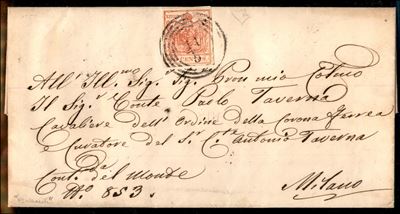 All' Ill.mo Sig.r Sig.r Pron mio Colmo
Il Sig.r Conte Paolo Taverna
Cavaliere dell' Ordine della Corona Ferrea
e Curatore del S.r C.te Antonio Taverna
Da
Cont. del Monte
N.o 853.
Milano